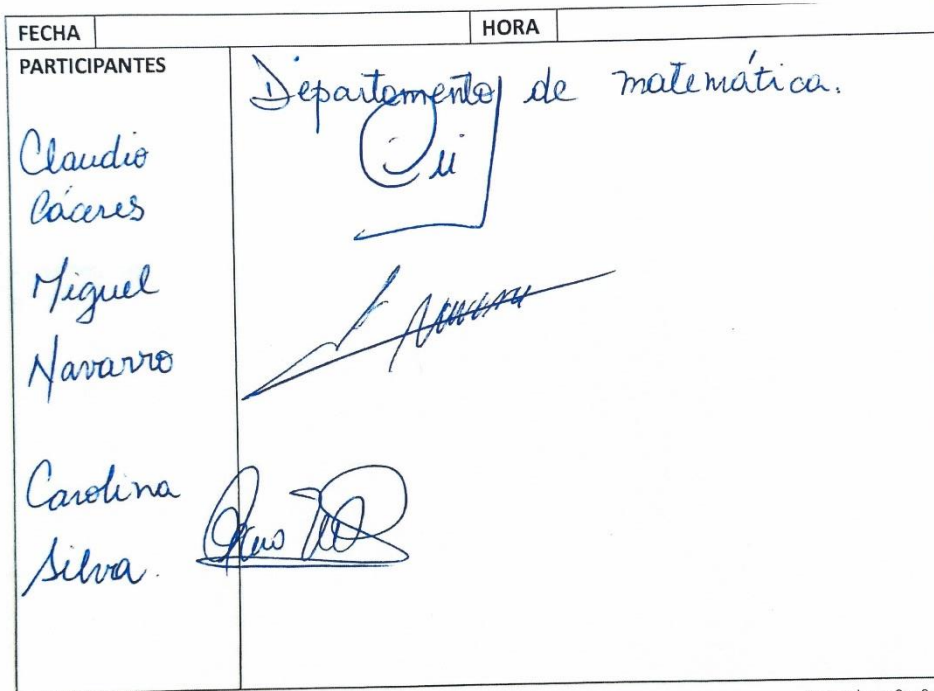 FECHA HORA
PARTICIPANTES
Departamento de matemática.
Claudio
Cáceres
Miguel
Navarro
Carolina
Silva.